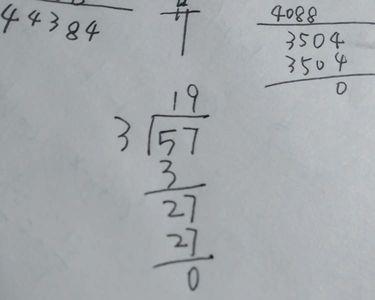 44384
4088
3504
3504
0
19
3 57
3
27
27
0